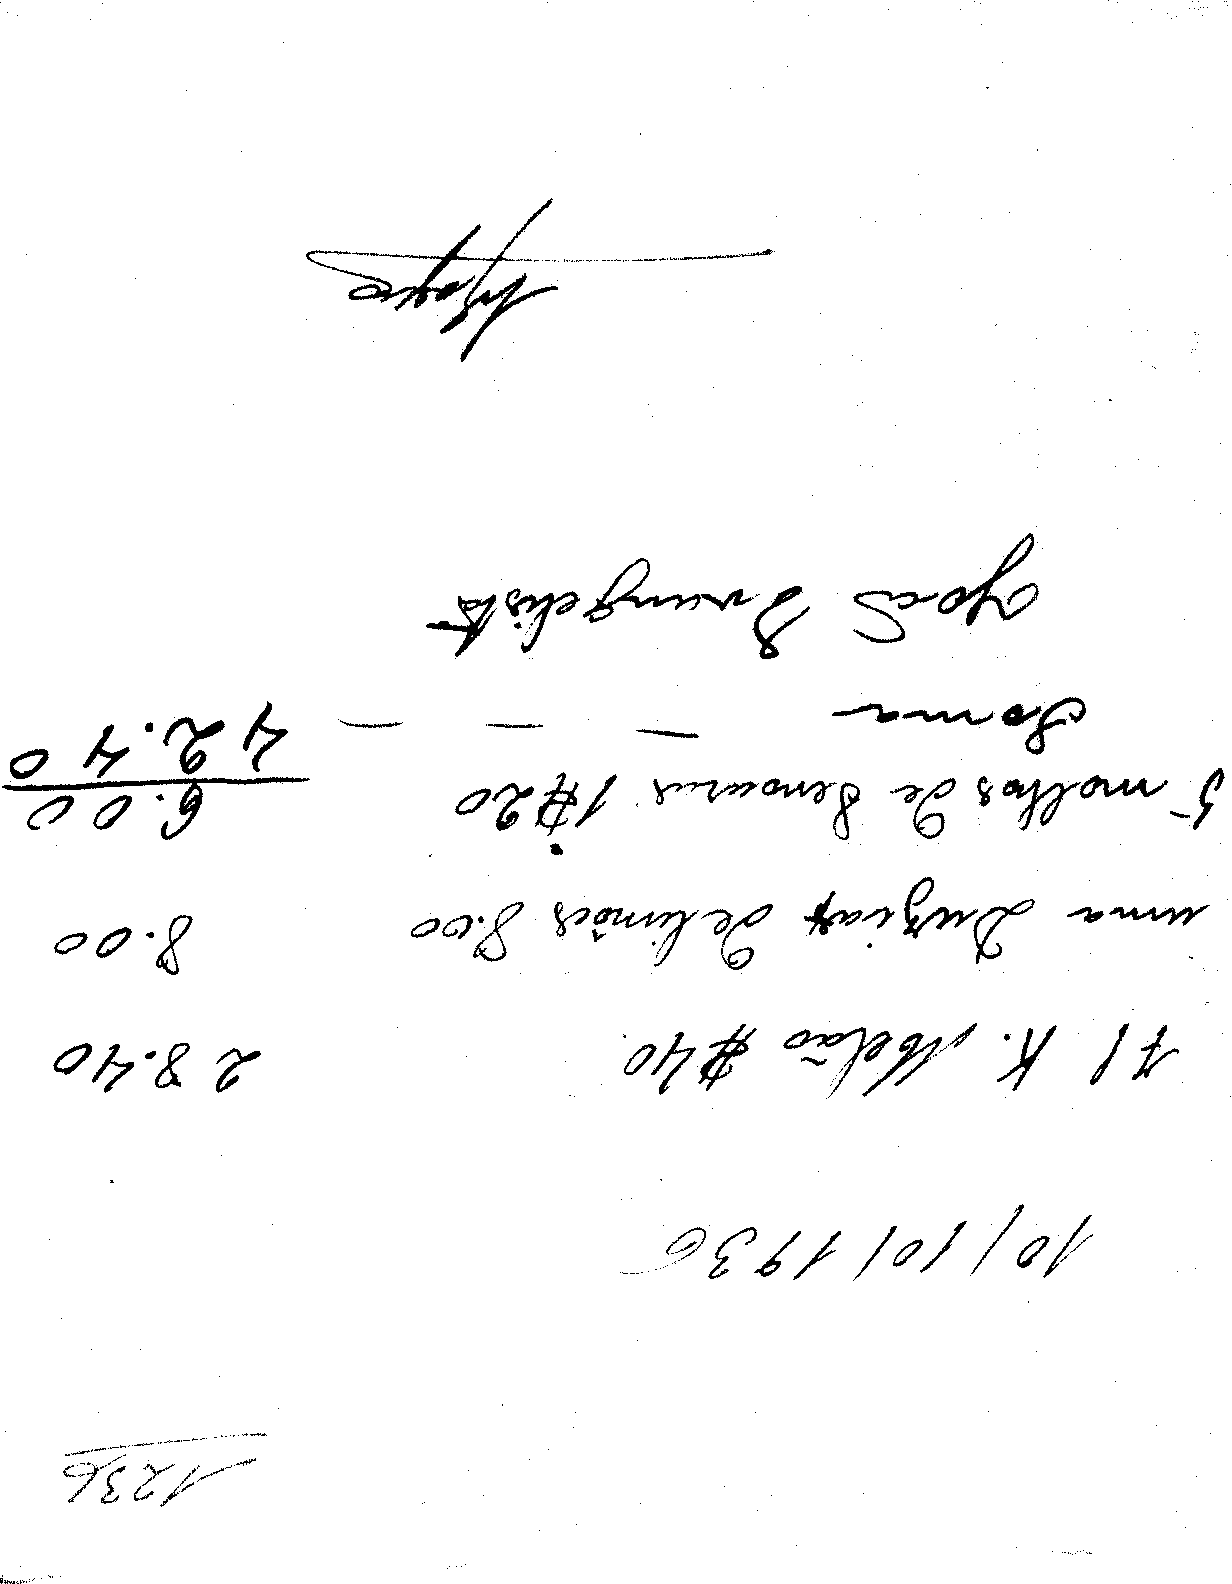 1236
10/10/1936
71 K. Melão $40 28.40
uma Duzia de limões 8.00 8.00
5 molhos de Senouras 1$20 6.00
Soma — — — 42.40
João Evangelista